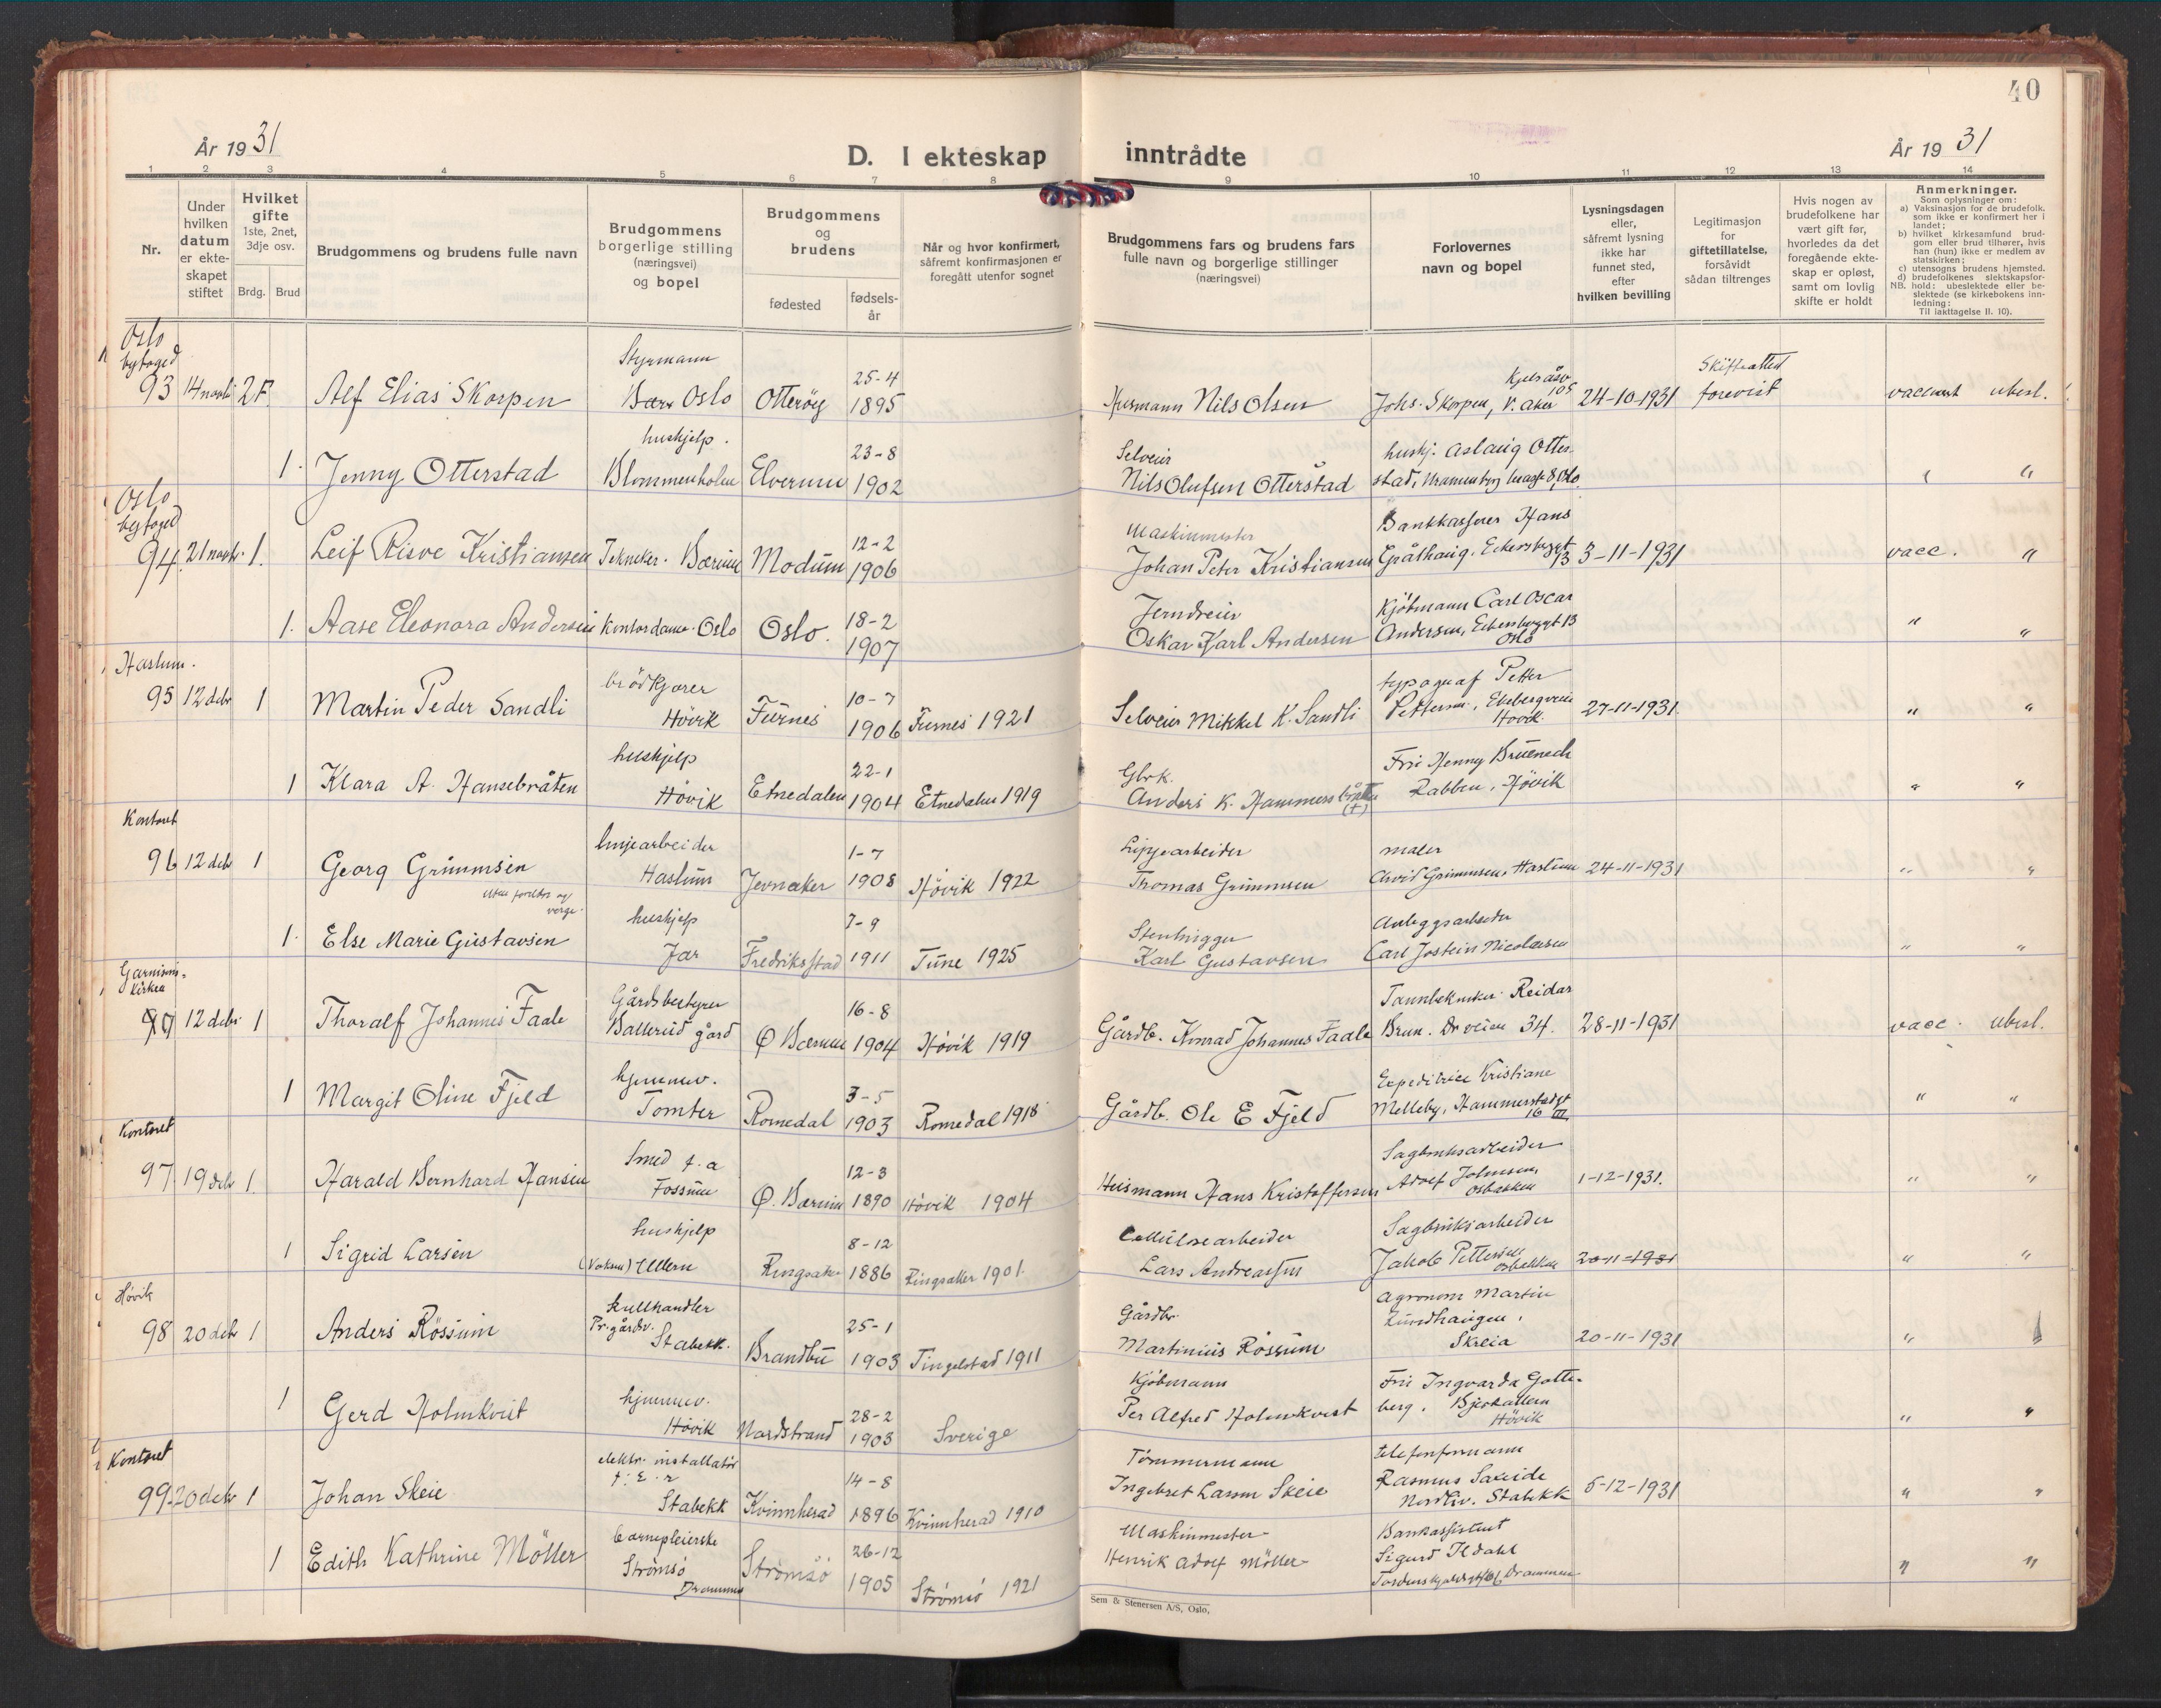 40
År 1931
D. I ekteskap inntrådte
År 1931
1 2 3 4 5 6 7 8 9 10 11 12 13 14
Nr.
Under hvilken datum er ekte-skapet stiftet
Hvilket gifte 1ste, 2net, 3dje osv.
Brdg. Brud
Brudgommens og brudens fulle navn
Brudgommens borgerlige stilling (næringsvei) og bopel
Brudgommens og brudens
fødested
fødsels-år
Når og hvor konfirmert, såfremt konfirmasjonen er foregått utenfor sognet
Brudgommens fars og brudens fars fulle navn og borgerlige stillinger (næringsvei)
Forlovernes navn og bopel
Lysningsdagen eller, såfremt lysning ikke har funnet sted, efter hvilken bevilling
Legitimasjon for giftetillatelse, forsåvidt sådan tiltrenges
Hvis nogen av brudefolkene har vært gift før, hvorledes da det foregående ekte-skap er opløst, samt om lovlig skifte er holdt
Anmerkninger.
Som oplysninger om:
a) Vaksinasjon for de brudefolk. som ikke er konfirmert her i landet;
b) hvilket kirkesamfund brud-gom eller brud tilhører, hvis han (hun) ikke er medlem av statskirken;
c) utensogns brudens hjemsted.
d) brudefolkenes slektskapsfor-hold: ubeslektede eller be-slektede (se kirkebokens inn-ledning:
NB.
Til iakttagelse II. 10).
Oslo
byfoged
Styrmann
25-4
Kjelsåsv 105
Skifteattest
93 14 novbr 2 F. Alf Elias Skorpen Oslo Otterøy 1895 Nils Olsen Johs. Skorpen, V. Aker 24-10-1931 forevist ubesl.
huskjelp.
23-8
Selveier
huskj. Aslaug Otter-
1. Jenny Otterstad Blommenholm Elverum 1902 Nils Olufsen Otterstad stad, Oslo "
Oslo
byfoged
Maskinmester
Bankkasserer Hans
12-2
94 21 novbr. 1. Leif Risve Kristiansen Tekniker. Bærum Modum 1906 Johan Peter Kristiansen Gråthaug, Eckersbergst 13 3-11-1931 vacc. "
18-2
Kjøbmann Carl Oscar
1. Aase Eleonora Andersen Kontordame. Oslo Oslo. 1907 Oskar Karl Andersen Andersen, Eckersbergst 13 Oslo " "
Haslum.
brödkjører
10-7
typograf Petter
95 12 debr 1 Martin Peder Sandli Hövik Furnes 1906 Furnes 1921 Selveier Mikkel K. Sandli Pettersen, Hövik. 27-11-1931 " "
huskjelp
22-1
Gbrk.
Fru Henny Bruenech
1 Klara A. Hansebråten Hövik Etnedalen 1904 Etnedalen 1919 Anders K. (†) Rabben, Hövik " "
Kontoret
linjearbeider
1-7
maler
96 12 debr 1 Georg Grimmsen Haslum Jevnaker 1908 Hövik 1922 Thomas Grimmsen Arvid Grimmsen, Haslum 24-11-1931 " "
verge.
huskjelp
7-9
Stenhugger
Anleggsarbeider
1. Else Marie Gustavsen Jar Fredriksstad 1911 Tune 1925 Karl Gustavsen Carl Jostein Nicolaisen " "
Garnisons-
kirken
Gårdsbestyrer
16-8
Tanntekniker Reidar
12 debr 1 Thoralf Johannes Faale Ballerud gård Ø Bærum 1904 Hövik 1919 Gårdb. Konrad Johannes Faale Brun. 34. 28-11-1931 vacc. ubesl.
hjemmev.
3-5
Expeditrice Kristiane
1 Margit Oline Fjeld Tomter Romedal 1903 Romedal 1918 Gårdb. Ole E Fjeld Melleby, Hammerstadgt 16 III " "
Kontoret
Smed f.a
12-3
Sagbruksarbeider
97. 19 debr 1. Harald Bernhard Hansen Fossum Ø. Bærum 1890 Hövik 1904 Husmann Hans Kristoffersen Adolf Johnsen, Osbakken 1-12-1931. " "
huskjelp
8-12
Cellulosearbeider
Sagbruksarbeider
1 Sigrid Larsen (Voksen) Ullern Ringsaker 1886 Ringsaker 1901. Lars Andreassen Jakob Pettersen Osbakken 20-11-1931 " "
Hövik
kullhandler
Pr. gårdv.
25-1
Gårdbr.
Agronom Martin
Lundhaugen,
98 20 debr 1 Anders Røssum Stabekk. Brandbu 1903 Tingelstad 1911 Martinius Røssum Skreia 20-11-1931 "
hjemmev.
28-2
Kjøbmann
Fru Ingvarda Gotte-
1 Gerd Holmkvist Hövik Nordstrand 1903 Sverige Per Alfred Holmkvist berg, Hövik " "
Kontoret
elektr. installatör
14-8
Tömmermann
telefonformann
Rasmus
99. 20 debr 1 Johan Skeie Stabekk Kvinnherad 1896 Kvinnherad 1910 Ingebret Larsen Skeie Nordliv. Stabekk 5-12-1931 " "
barnepleierske
26-12
Maskinmester
Bankassistent
Sigurd Ildahl
1 Edith Kathrine Möller Strömsö Drammen Strömsö 1905 Strömsö 1921 Henrik Adolf Möller Drammen " "
Sem & Stenersen A/S, Oslo,